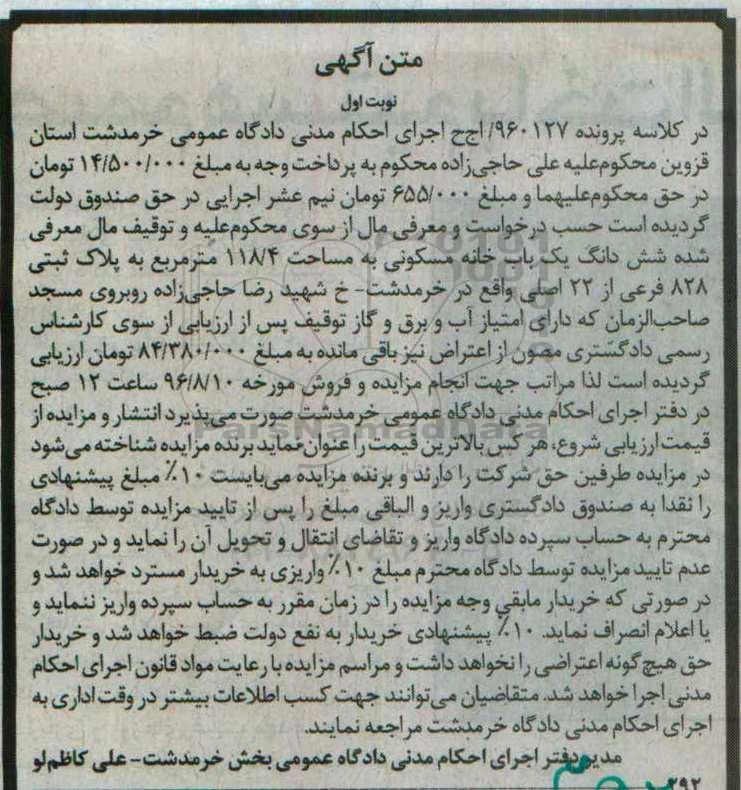 متن آگهی
نوبت اول
در کلاسه پرونده ۹۶۰۱۲۷/ اجح اجرای احکام مدنی دادگاه عمومی خرمدشت استان
قزوین محکوم‌علیه علی حاجی‌زاده محکوم به پرداخت وجه به مبلغ ۱۴/۵۰۰/۰۰۰ تومان
در حق محکوم‌علیهما و مبلغ ۶۵۵/۰۰۰ تومان نیم عشر اجرایی در حق صندوق دولت
گردیده است حسب درخواست و معرفی مال از سوی محکوم‌علیه و توقیف مال معرفی
شده شش دانگ یک باب خانه مسکونی به مساحت ۱۱۸/۴ مترمربع به پلاک ثبتی
۸۲۸ فرعی از ۲۲ اصلی واقع در خرمدشت- خ شهید رضا حاجی‌زاده روبروی مسجد
صاحب‌الزمان که دارای امتیاز آب و برق و گاز توقیف پس از ارزیابی از سوی کارشناس
رسمی دادگستری مصون از اعتراض نیز باقی مانده به مبلغ ۸۴/۳۸۰/۰۰۰ تومان ارزیابی
گردیده است لذا مراتب جهت انجام مزایده و فروش مورخه ۹۶/۸/۱۰ ساعت ۱۲ صبح
در دفتر اجرای احکام مدنی دادگاه عمومی خرمدشت صورت می‌پذیرد انتشار و مزایده از
قیمت ارزیابی شروع، هر کس بالاترین قیمت را عنوان نماید برنده مزایده شناخته می‌شود
در مزایده طرفین حق شرکت را دارند و برنده مزایده می‌بایست ۱۰٪ مبلغ پیشنهادی
را نقدا به صندوق دادگستری واریز و الباقی مبلغ را پس از تایید مزایده توسط دادگاه
محترم به حساب سپرده دادگاه واریز و تقاضای انتقال و تحویل آن را نماید و در صورت
عدم تایید مزایده توسط دادگاه محترم مبلغ ۱۰٪ واریزی به خریدار مسترد خواهد شد و
در صورتی که خریدار مابقی وجه مزایده را در زمان مقرر به حساب سپرده واریز ننماید و
یا اعلام انصراف نماید. ۱۰٪ پیشنهادی خریدار به نفع دولت ضبط خواهد شد و خریدار
حق هیچ گونه اعتراضی را نخواهد داشت و مراسم مزایده با رعایت مواد قانون اجرای احکام
مدنی اجرا خواهد شد. متقاضیان می‌توانند جهت کسب اطلاعات بیشتر در وقت اداری به
اجرای احکام مدنی دادگاه خرمدشت مراجعه نمایند.
مدیر دفتر اجرای احکام مدنی دادگاه عمومی بخش خرمدشت- علی کاظم‌لو
۲۹۲
ParsNamadData